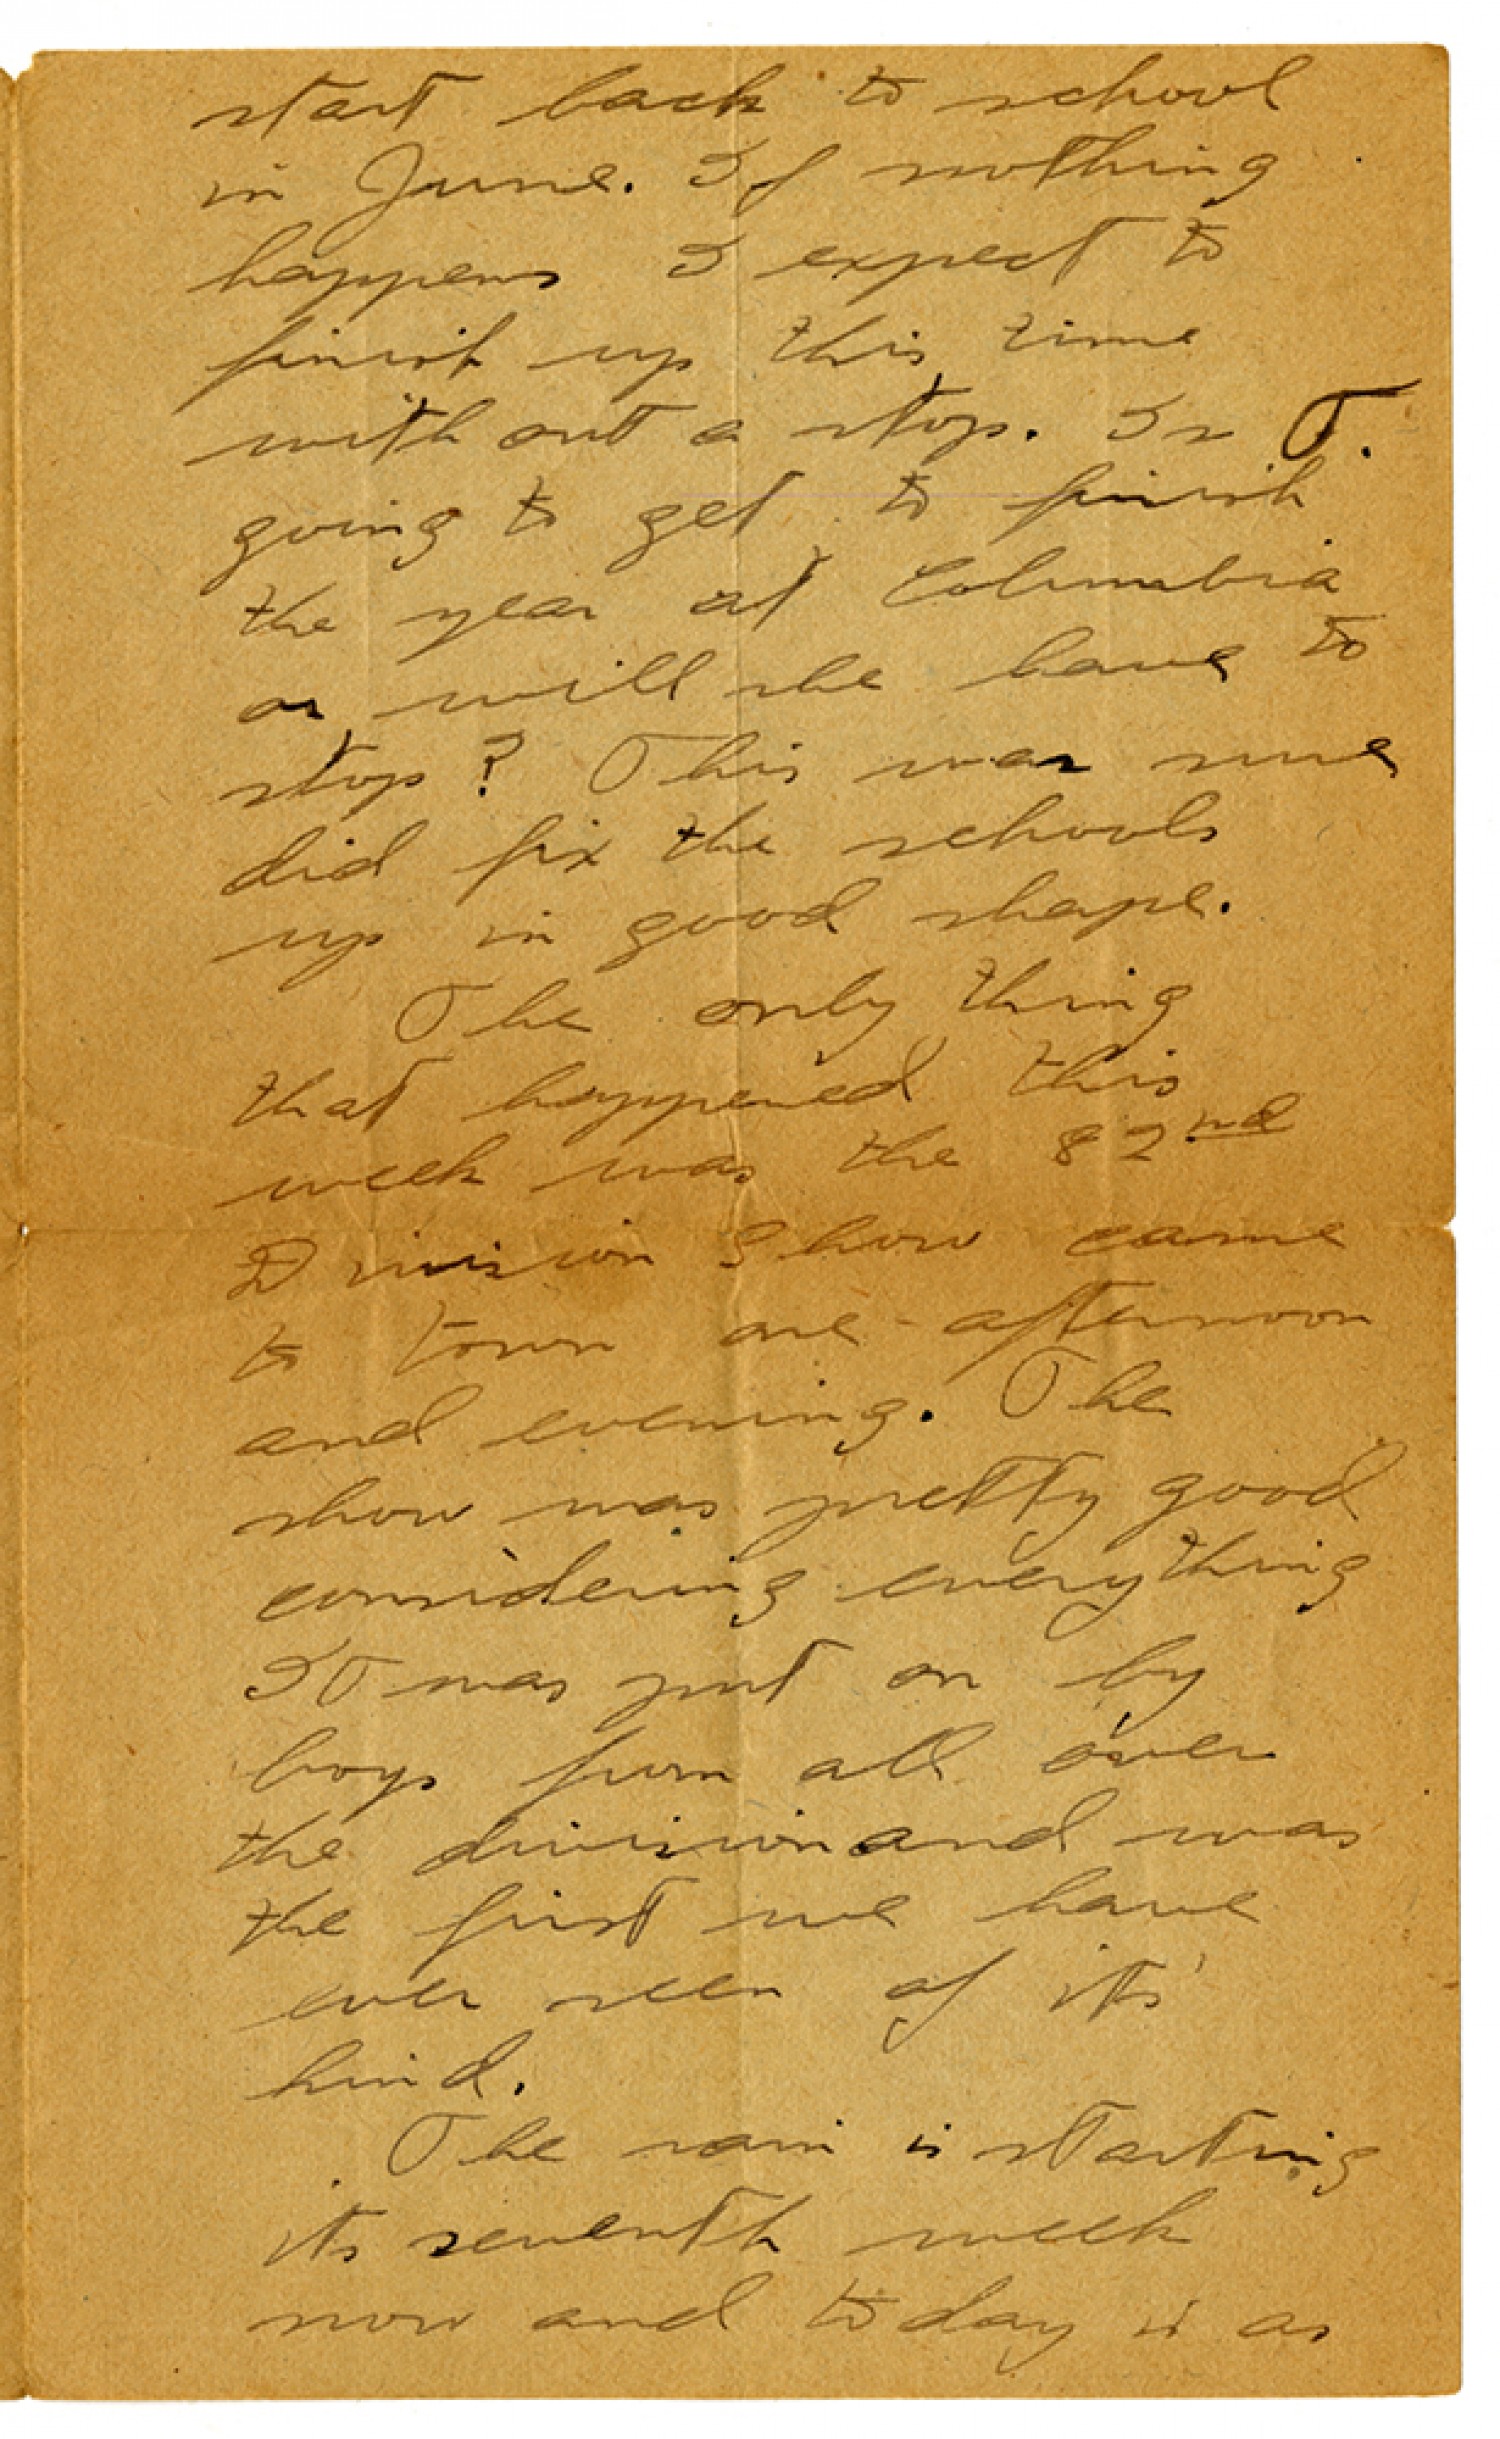 start back to school
in June. If nothing
happens I expect to
finish up this time
with out a stop. Is T.
going to get to finish
the year at Columbia
or will she have to
stop? This war sure
did fix the schools
up in good shape.
The only thing
that happened this
week was the 82nd
Division Show came
to town one afternoon
and evening. The
show was pretty good
considering everything
It was put on by
boys from all over
the division and was
the first we have
ever seen of it's
kind.
The rain is starting
its seventh week
now and today is as